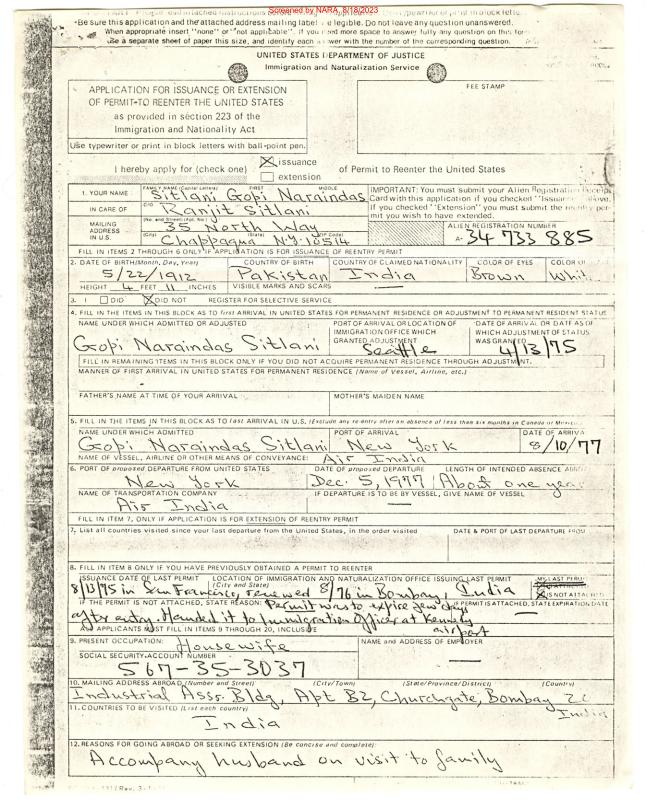 Screened by NARA, 8/18/2023
•Be sure this application and the attached address mailing label is legible. Do not leave any question unanswered.
When appropriate insert "none" or "not applicable". If you need more space to answer fully any question on this form
use a separate sheet of paper this size, and identify each answer with the number of the corresponding question.
UNITED STATES DEPARTMENT OF JUSTICE
Immigration and Naturalization Service
APPLICATION FOR ISSUANCE OR EXTENSION
OF PERMIT TO REENTER THE UNITED STATES
as provided in section 223 of the
Immigration and Nationality Act
FEE STAMP
Use typewriter or print in block letters with ball-point pen.
I hereby apply for (check one) X issuance
extension
of Permit to Reenter the United States
1. YOUR NAME FAMILY NAME (Capital Letters) FIRST MIDDLE
Sitlani Gopi Naraindas
IN CARE OF C/O
Ranjit Sitlani
MAILING ADDRESS IN U.S. (No. and Street) (Apt. No.)
35 North Way
(City) (State) (ZIP Code)
Chappaqua NY. 10514
IMPORTANT: You must submit your Alien Registration Receipt
Card with this application if you checked "Issuance" above.
If you checked "Extension" you must submit the reentry per-
mit you wish to have extended.
ALIEN REGISTRATION NUMBER
A- 34 733 885
FILL IN ITEMS 2 THROUGH 6 ONLY IF APPLICATION IS FOR ISSUANCE OF REENTRY PERMIT
2. DATE OF BIRTH (Month, Day, Year) COUNTRY OF BIRTH COUNTRY OF CLAIMED NATIONALITY COLOR OF EYES COLOR OF
5/22/1912 Pakistan India Brown White
HEIGHT 4 FEET 11 INCHES VISIBLE MARKS AND SCARS —
3. I DID X DID NOT REGISTER FOR SELECTIVE SERVICE
4. FILL IN THE ITEMS IN THIS BLOCK AS TO first ARRIVAL IN UNITED STATES FOR PERMANENT RESIDENCE OR ADJUSTMENT TO PERMANENT RESIDENT STATUS
NAME UNDER WHICH ADMITTED OR ADJUSTED
Gopi Naraindas Sitlani
PORT OF ARRIVAL OR LOCATION OF
IMMIGRATION OFFICE WHICH
GRANTED ADJUSTMENT
Seattle
DATE OF ARRIVAL OR DATE AS OF
WHICH ADJUSTMENT OF STATUS
WAS GRANTED
4/13/75
FILL IN REMAINING ITEMS IN THIS BLOCK ONLY IF YOU DID NOT ACQUIRE PERMANENT RESIDENCE THROUGH ADJUSTMENT.
MANNER OF FIRST ARRIVAL IN UNITED STATES FOR PERMANENT RESIDENCE (Name of Vessel, Airline, etc.)
FATHER'S NAME AT TIME OF YOUR ARRIVAL MOTHER'S MAIDEN NAME
5. FILL IN THE ITEMS IN THIS BLOCK AS TO last ARRIVAL IN U.S. (Exclude any re-entry after an absence of less than six months in Canada or Mexico)
NAME UNDER WHICH ADMITTED PORT OF ARRIVAL DATE OF ARRIVAL
Gopi Naraindas Sitlani New York 8/10/77
NAME OF VESSEL, AIRLINE OR OTHER MEANS OF CONVEYANCE: Air India
6. PORT OF proposed DEPARTURE FROM UNITED STATES DATE OF proposed DEPARTURE LENGTH OF INTENDED ABSENCE
New York Dec. 5, 1977 About one year
NAME OF TRANSPORTATION COMPANY IF DEPARTURE IS TO BE BY VESSEL, GIVE NAME OF VESSEL
Air India —
FILL IN ITEM 7, ONLY IF APPLICATION IS FOR EXTENSION OF REENTRY PERMIT
7. List all countries visited since your last departure from the United States, in the order visited DATE & PORT OF LAST DEPARTURE FROM
8. FILL IN ITEM 8 ONLY IF YOU HAVE PREVIOUSLY OBTAINED A PERMIT TO REENTER
ISSUANCE DATE OF LAST PERMIT LOCATION OF IMMIGRATION AND NATURALIZATION OFFICE ISSUING LAST PERMIT MY LAST PERMIT
(City and State)
8/13/75 in San Francisco, renewed 8/76 in Bombay, India
X IS NOT ATTACHED
IF THE PERMIT IS NOT ATTACHED, STATE REASON: Permit was to expire few days
IF PERMIT IS ATTACHED, STATE EXPIRATION DATE
after entry. Handed it to Immigration Officer at Kennedy
airport
ALL APPLICANTS MUST FILL IN ITEMS 9 THROUGH 20, INCLUSIVE
9. PRESENT OCCUPATION: Housewife NAME and ADDRESS OF EMPLOYER
SOCIAL SECURITY ACCOUNT NUMBER —
567-35-3037
10. MAILING ADDRESS ABROAD (Number and Street) (City/Town) (State/Province/District) (Country)
Industrial Assr. Bldg, Apt B2, Churchgate, Bombay 20
India
11. COUNTRIES TO BE VISITED (List each country)
India
12. REASONS FOR GOING ABROAD OR SEEKING EXTENSION (Be concise and complete)
Accompany husband on visit to family